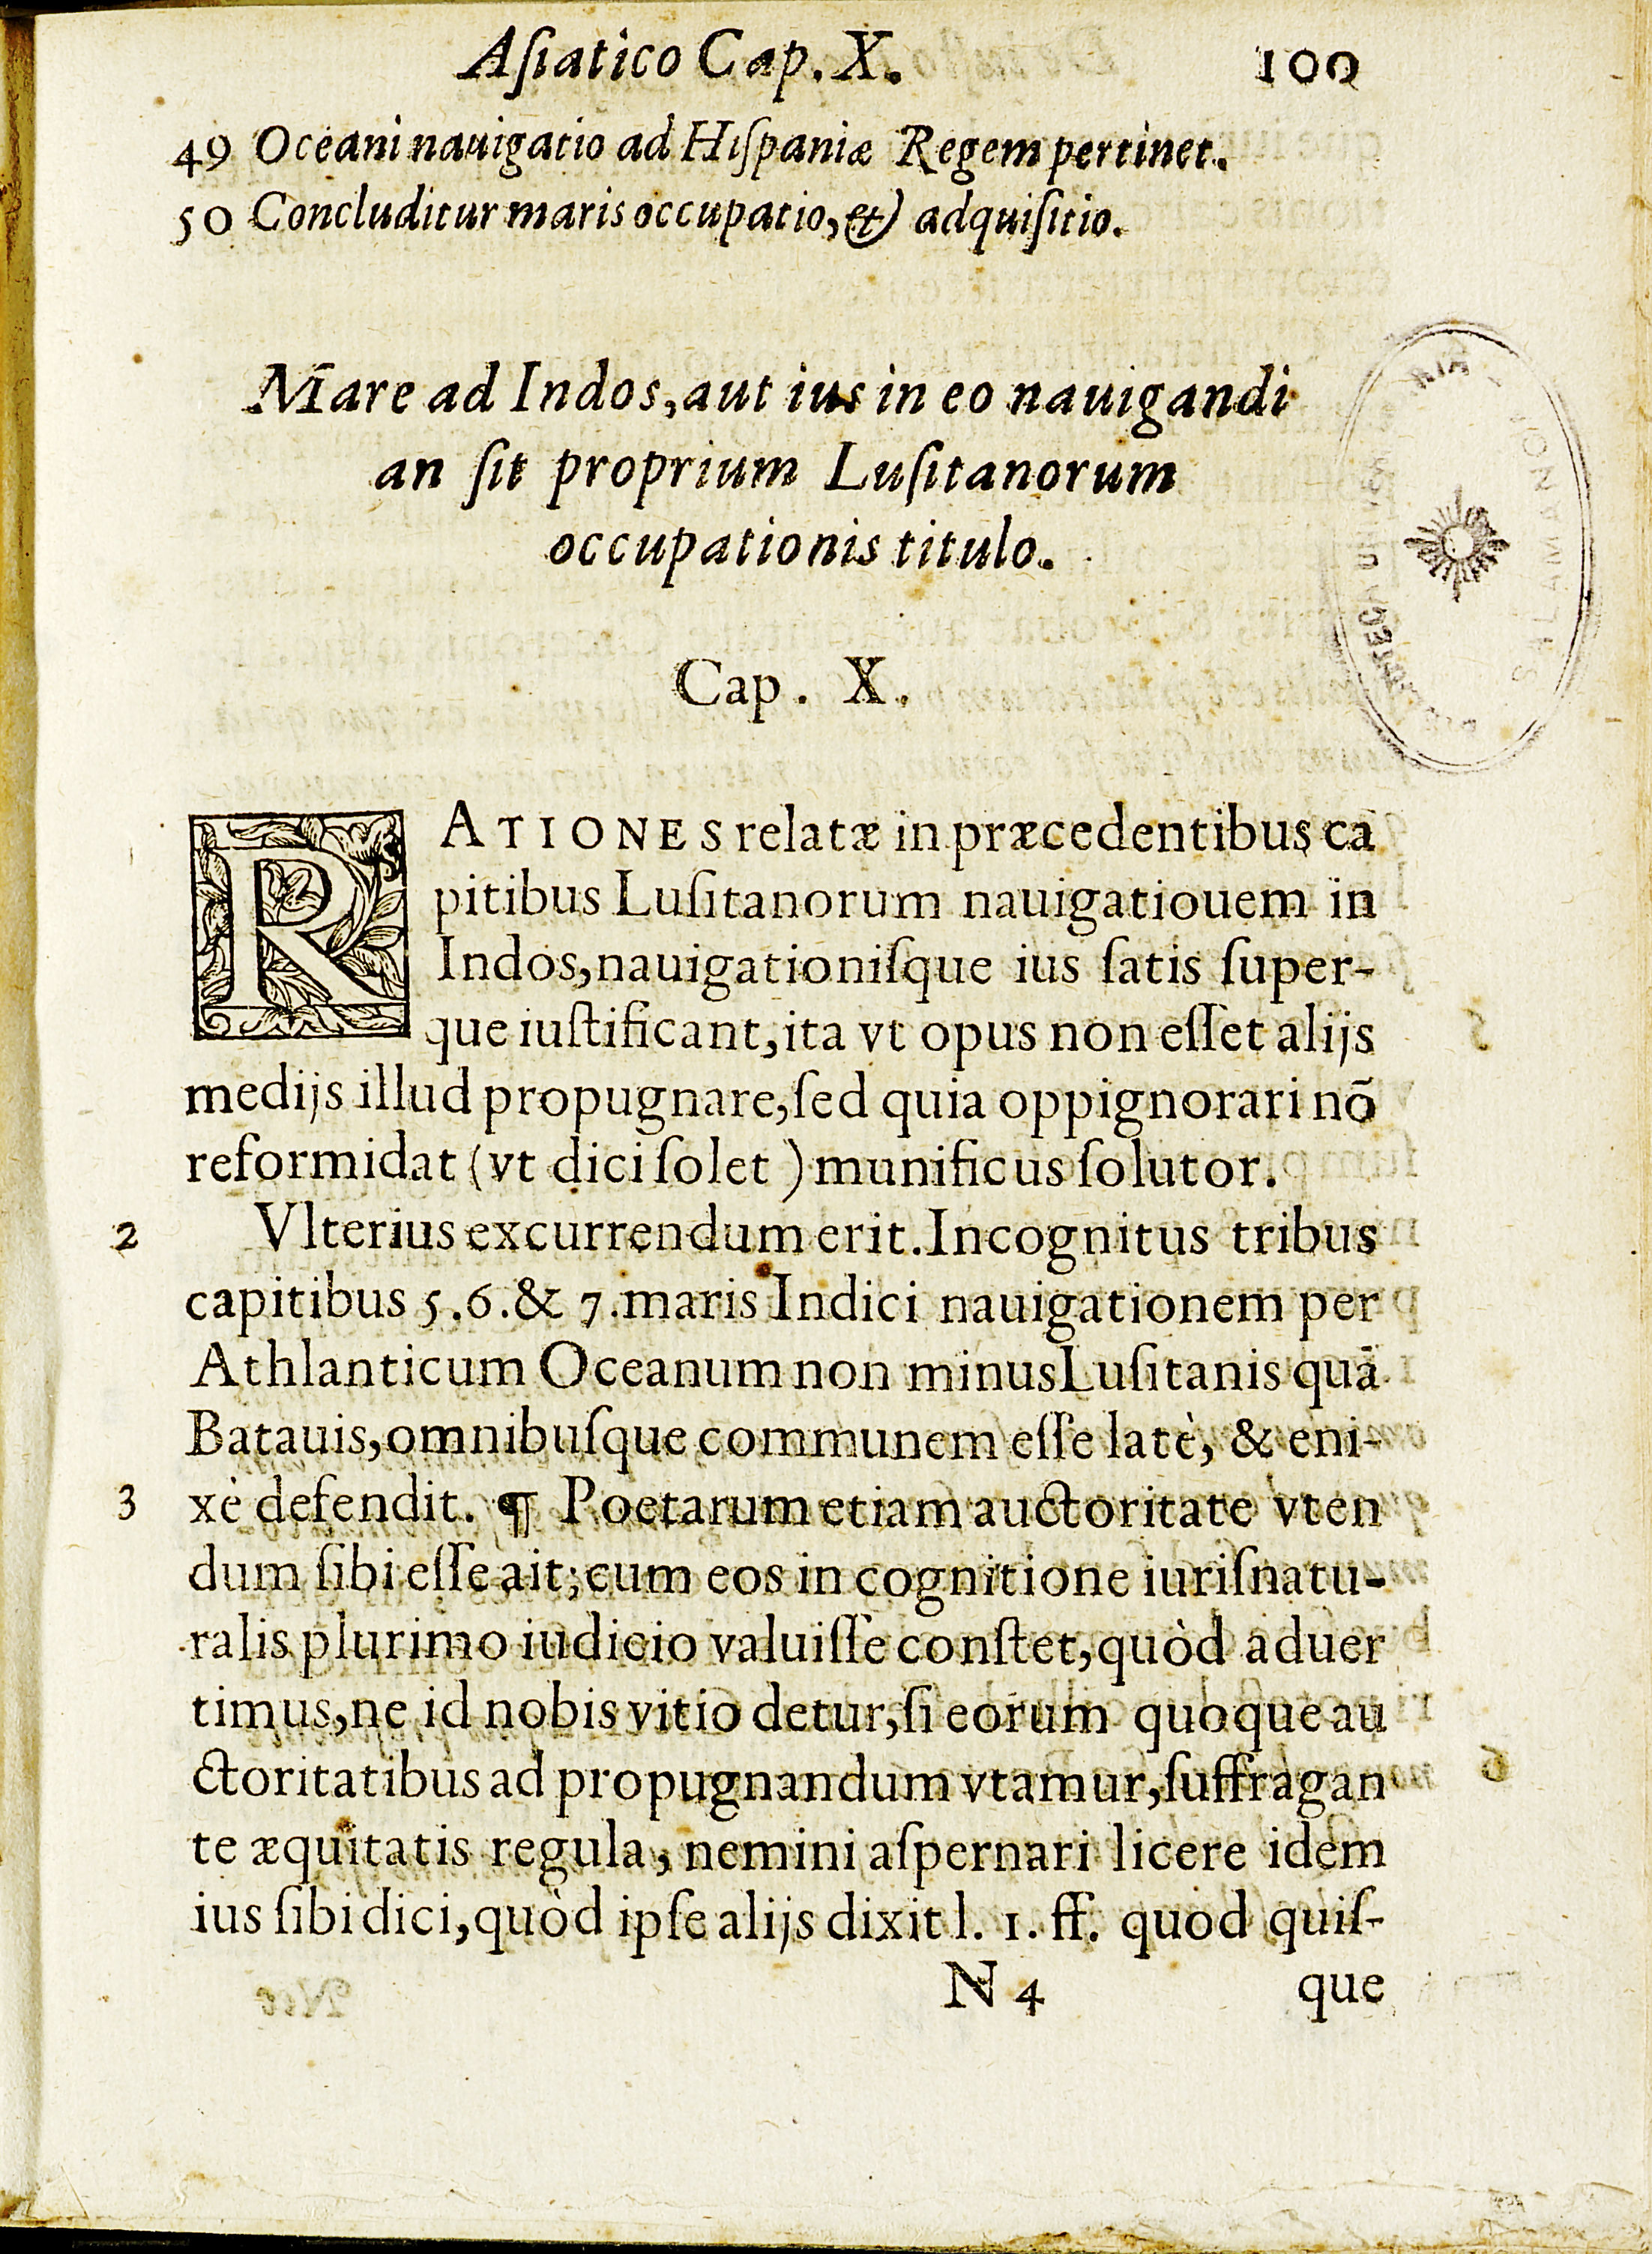 Aſiatico Cap. X. 100
49 Oceani nauigatio ad Hiſpaniæ Regem pertinet.
50 Concluditur maris occupatio, & adquiſitio.
Mare ad Indos, aut ius in eo nauigandi
an ſit proprium Luſitanorum
occupationis titulo.
Cap. X.
RATIONES relatæ in præcedentibus ca
pitibus Luſitanorum nauigatiouem in
Indos, nauigationiſque ius ſatis ſuper-
que iuſtificant, ita vt opus non eſſet alijs
medijs illud propugnare, ſed quia oppignorari nõ
reformidat (vt dici ſolet) munificus ſolutor.
2 Vlterius excurrendum erit. Incognitus tribus
capitibus 5.6.& 7. maris Indici nauigationem per
Athlanticum Oceanum non minus Luſitanis quã
Batauis, omnibuſque communem eſſe latè, & eni-
3 xè defendit. ¶ Poetarum etiam auctoritate vten
dum ſibi eſſe ait; cum eos in cognitione iuriſnatu-
ralis plurimo iudicio valuiſſe conſtet, quòd aduer
timus, ne id nobis vitio detur, ſi eorum quoque au
ctoritatibus ad propugnandum vtamur, ſuffragan
te æquitatis regula, nemini aſpernari licere idem
ius ſibi dici, quòd ipſe alijs dixit l. 1. ff. quod quiſ-
N 4 que